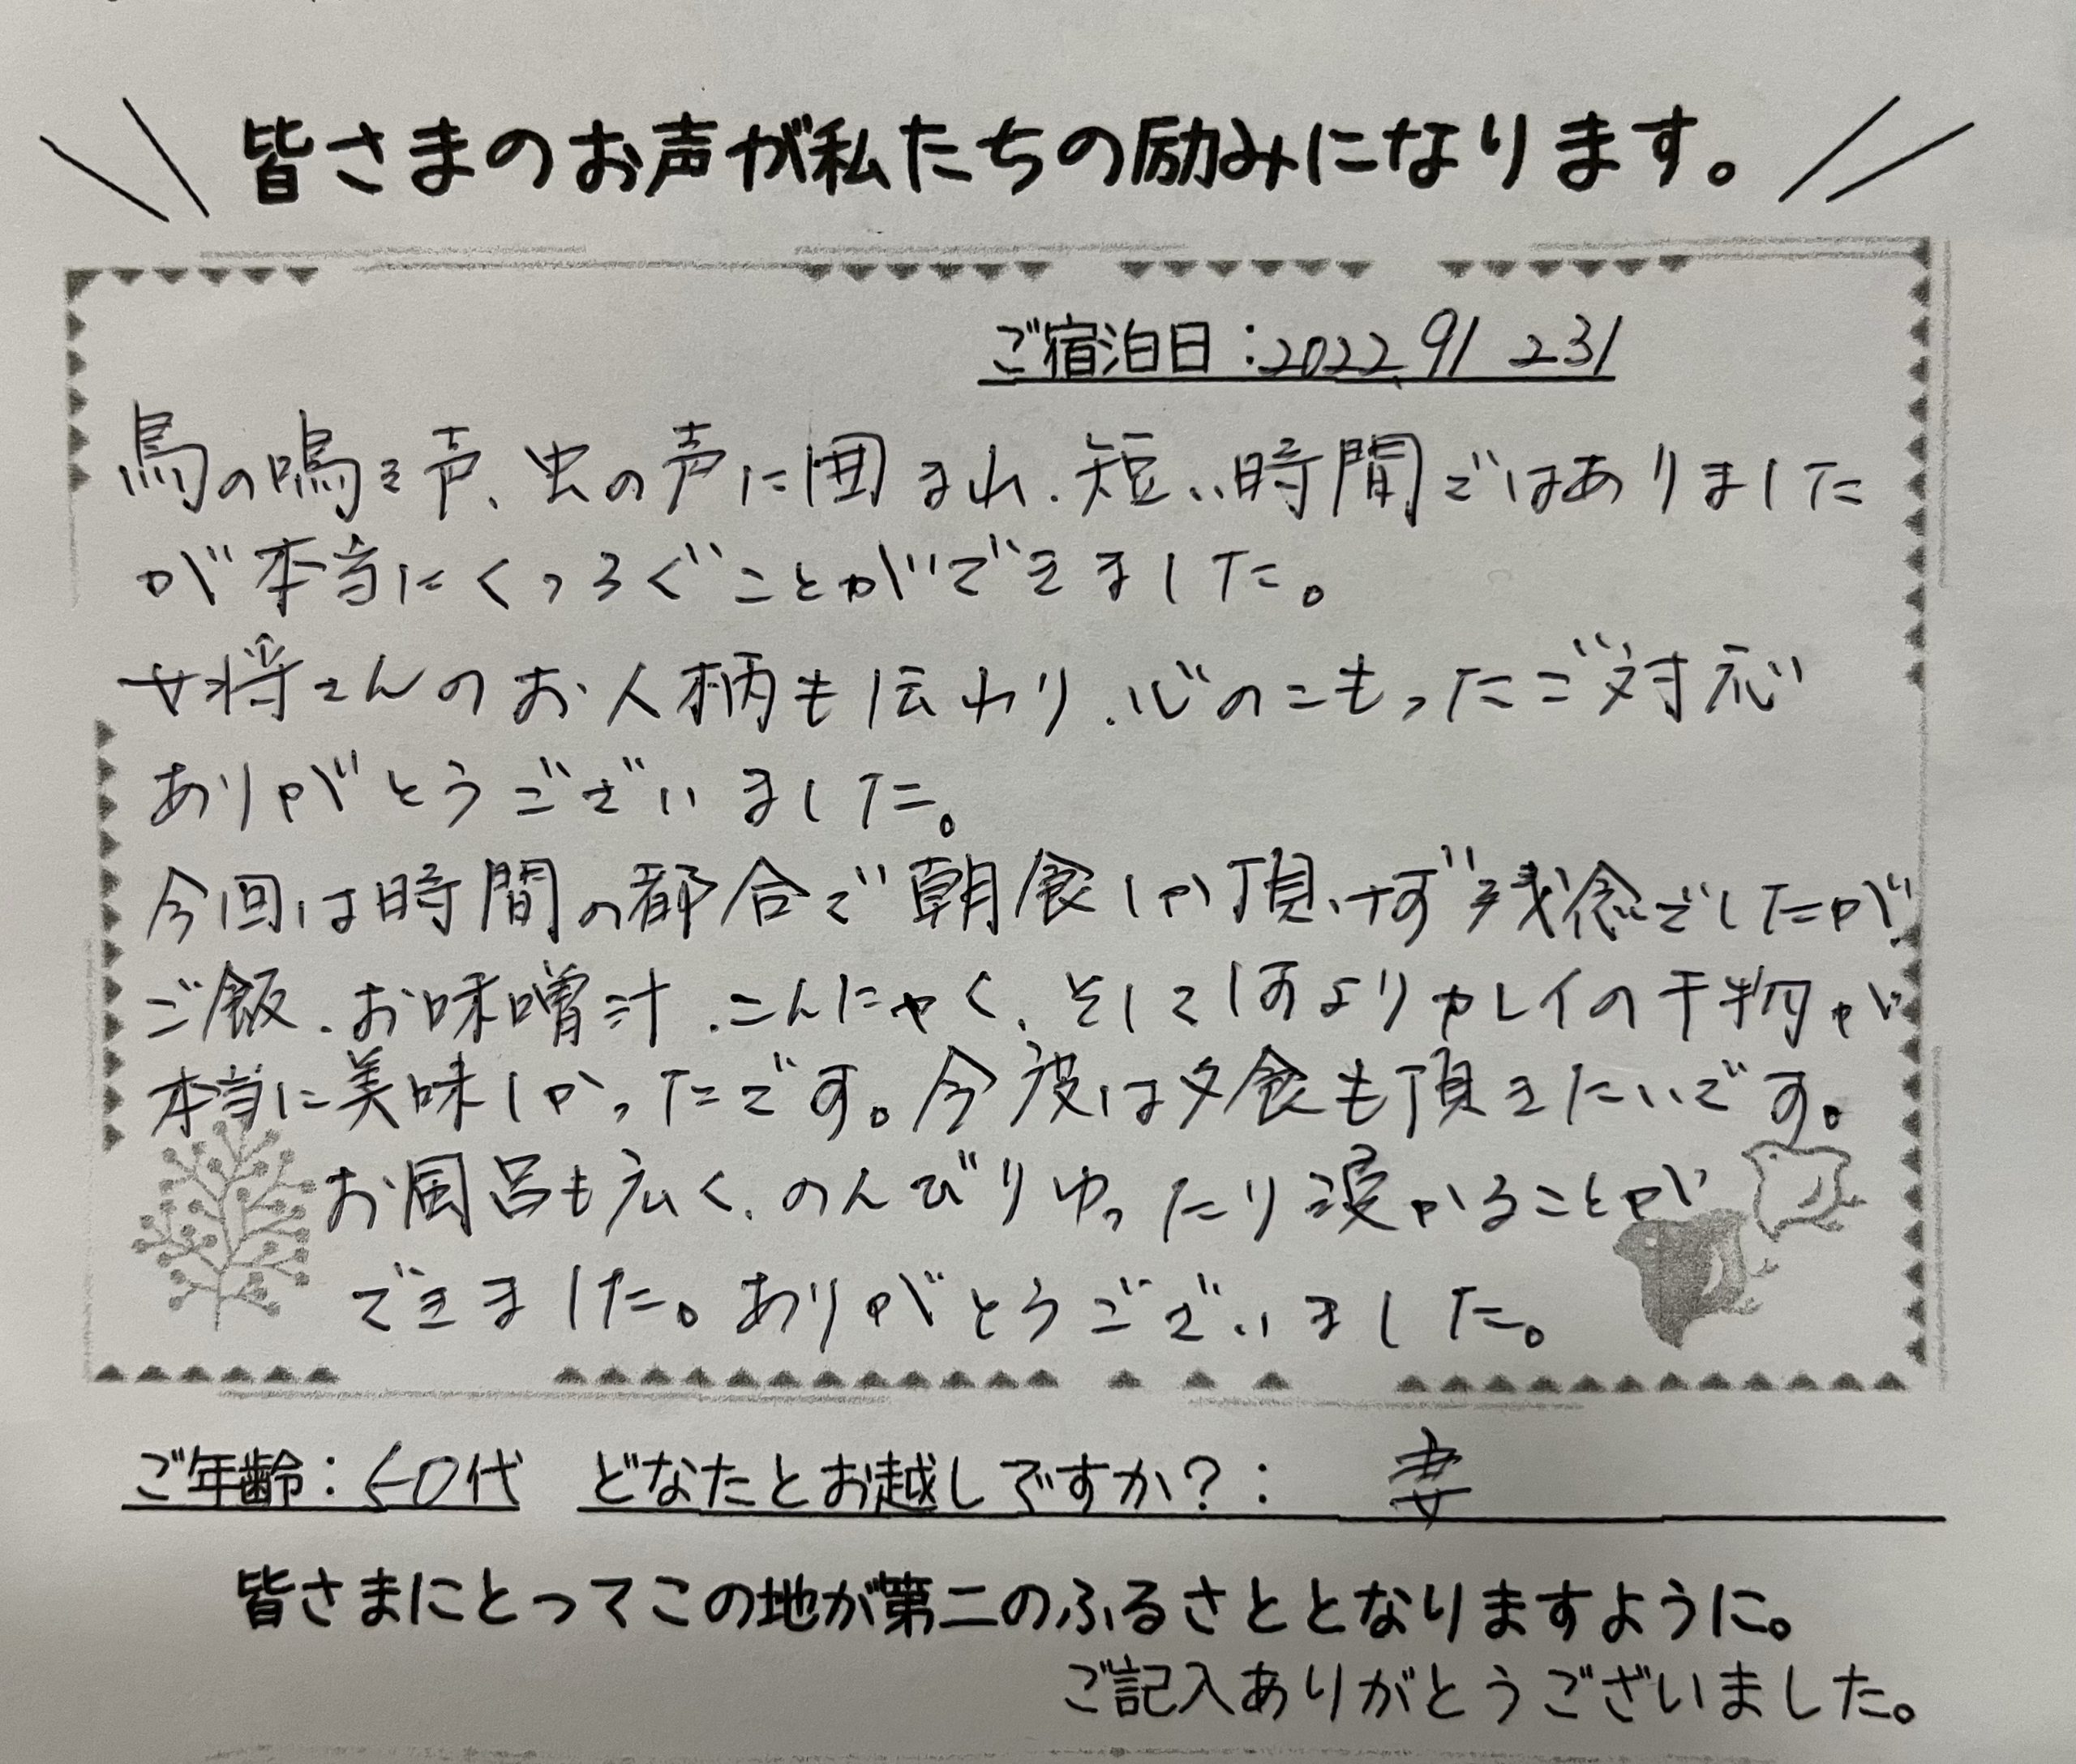 皆さまのお声が私たちの励みになります。
ご宿泊日:2022.9/ 23/
鳥の鳴き声、虫の声に囲まれ、短い時間ではありました
が本当にくつろぐことができました。
女将さんのお人柄も伝わり、心のこもったご対応
ありがとうございました。
今回は時間の都合で朝食しか頂けず残念でしたが、
ご飯、お味噌汁、こんにゃく、そして何よりカレイの干物が
本当に美味しかったです。今度は夕食も頂きたいです。
お風呂も広く、のんびりゆったり浸かることが
できました。ありがとうございました。
ご年齢:50代 どなたとお越しですか?: 妻
皆さまにとってこの地が第二のふるさととなりますように。
ご記入ありがとうございました。